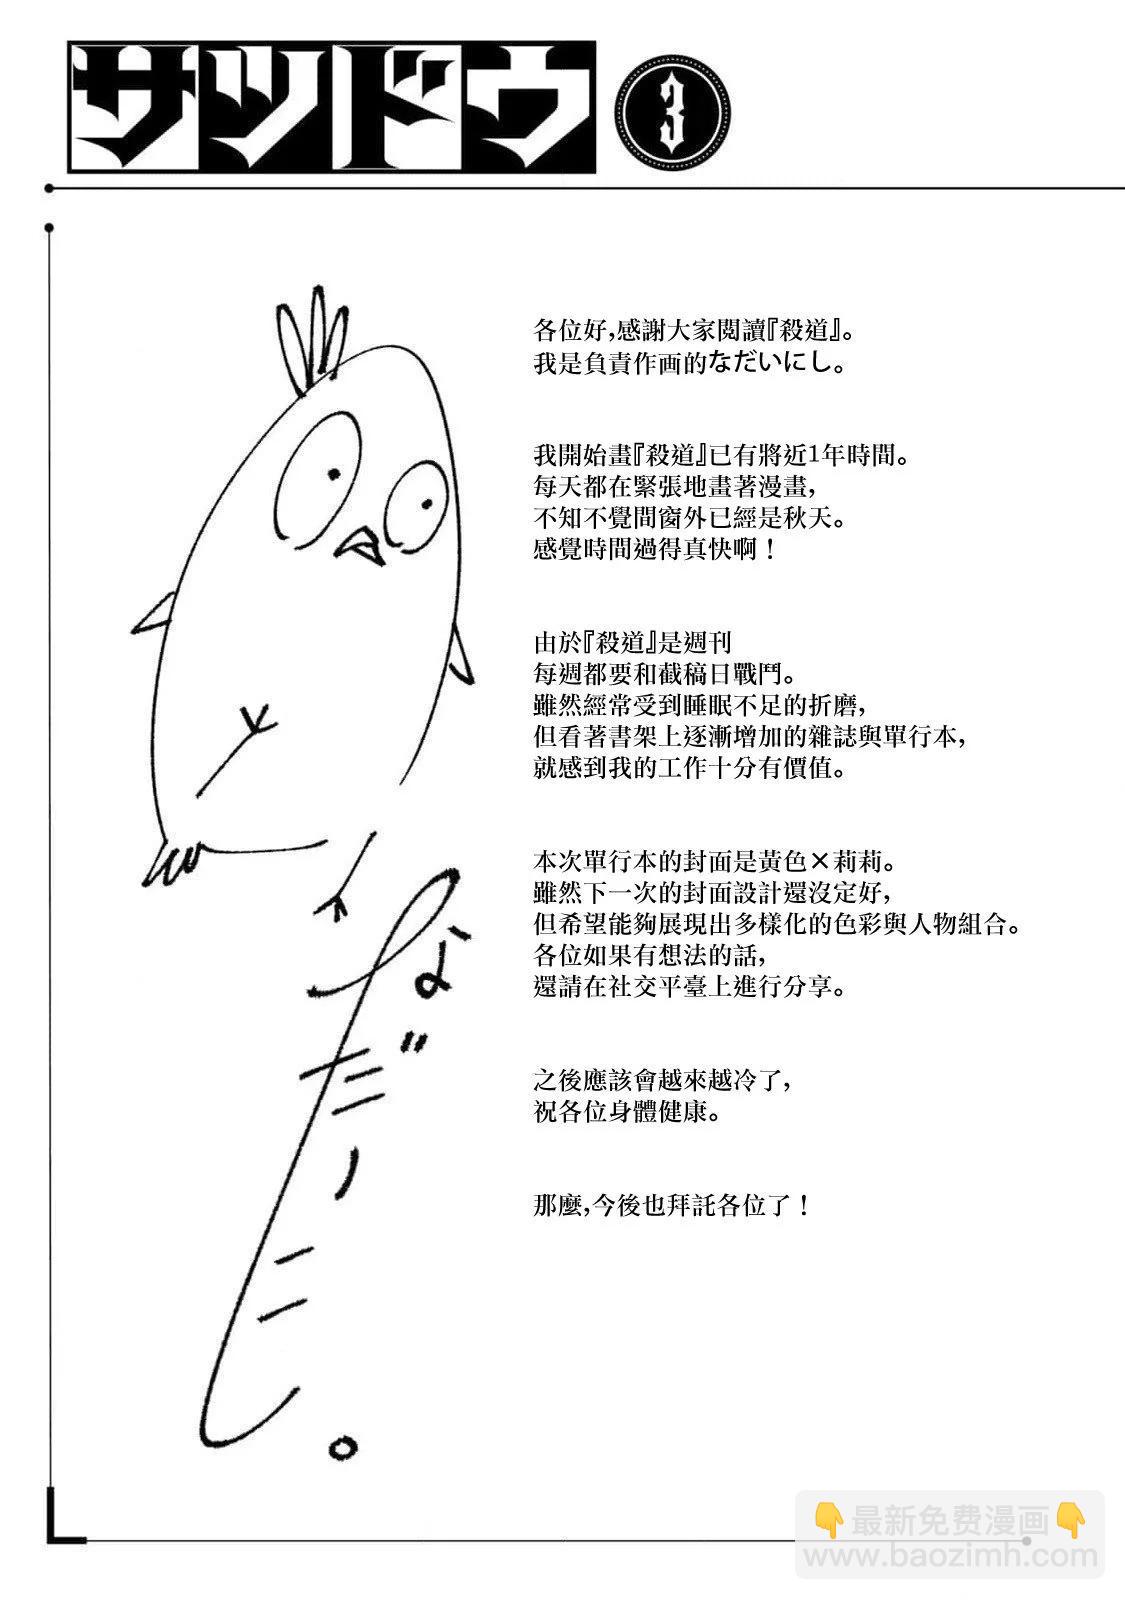 サツドウ 3
各位好,感謝大家閱讀『殺道』。
我是負責作画的なだいにし。
我開始畫『殺道』已有將近1年時間。
每天都在緊張地畫著漫畫,
不知不覺間窗外已經是秋天。
感覺時間過得真快啊！
由於『殺道』是週刊
每週都要和截稿日戰鬥。
雖然經常受到睡眠不足的折磨,
但看著書架上逐漸增加的雜誌與單行本,
就感到我的工作十分有價值。
本次單行本的封面是黃色×莉莉。
雖然下一次的封面設計還沒定好,
但希望能夠展現出多樣化的色彩與人物組合。
各位如果有想法的話,
還請在社交平臺上進行分享。
之後應該會越來越冷了,
祝各位身體健康。
那麼,今後也拜託各位了！
なだいにし。
👇最新免费漫画👇
www.baozimh.com